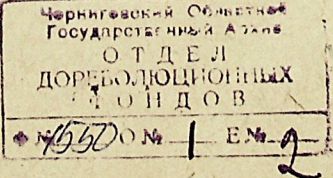 Черниговский Областной
Государственный Архив
ОТДЕЛ
ДОРЕВОЛЮЦИОННЫХ
ФОНДОВ
Ф № 1550 О № 1 Е № 2